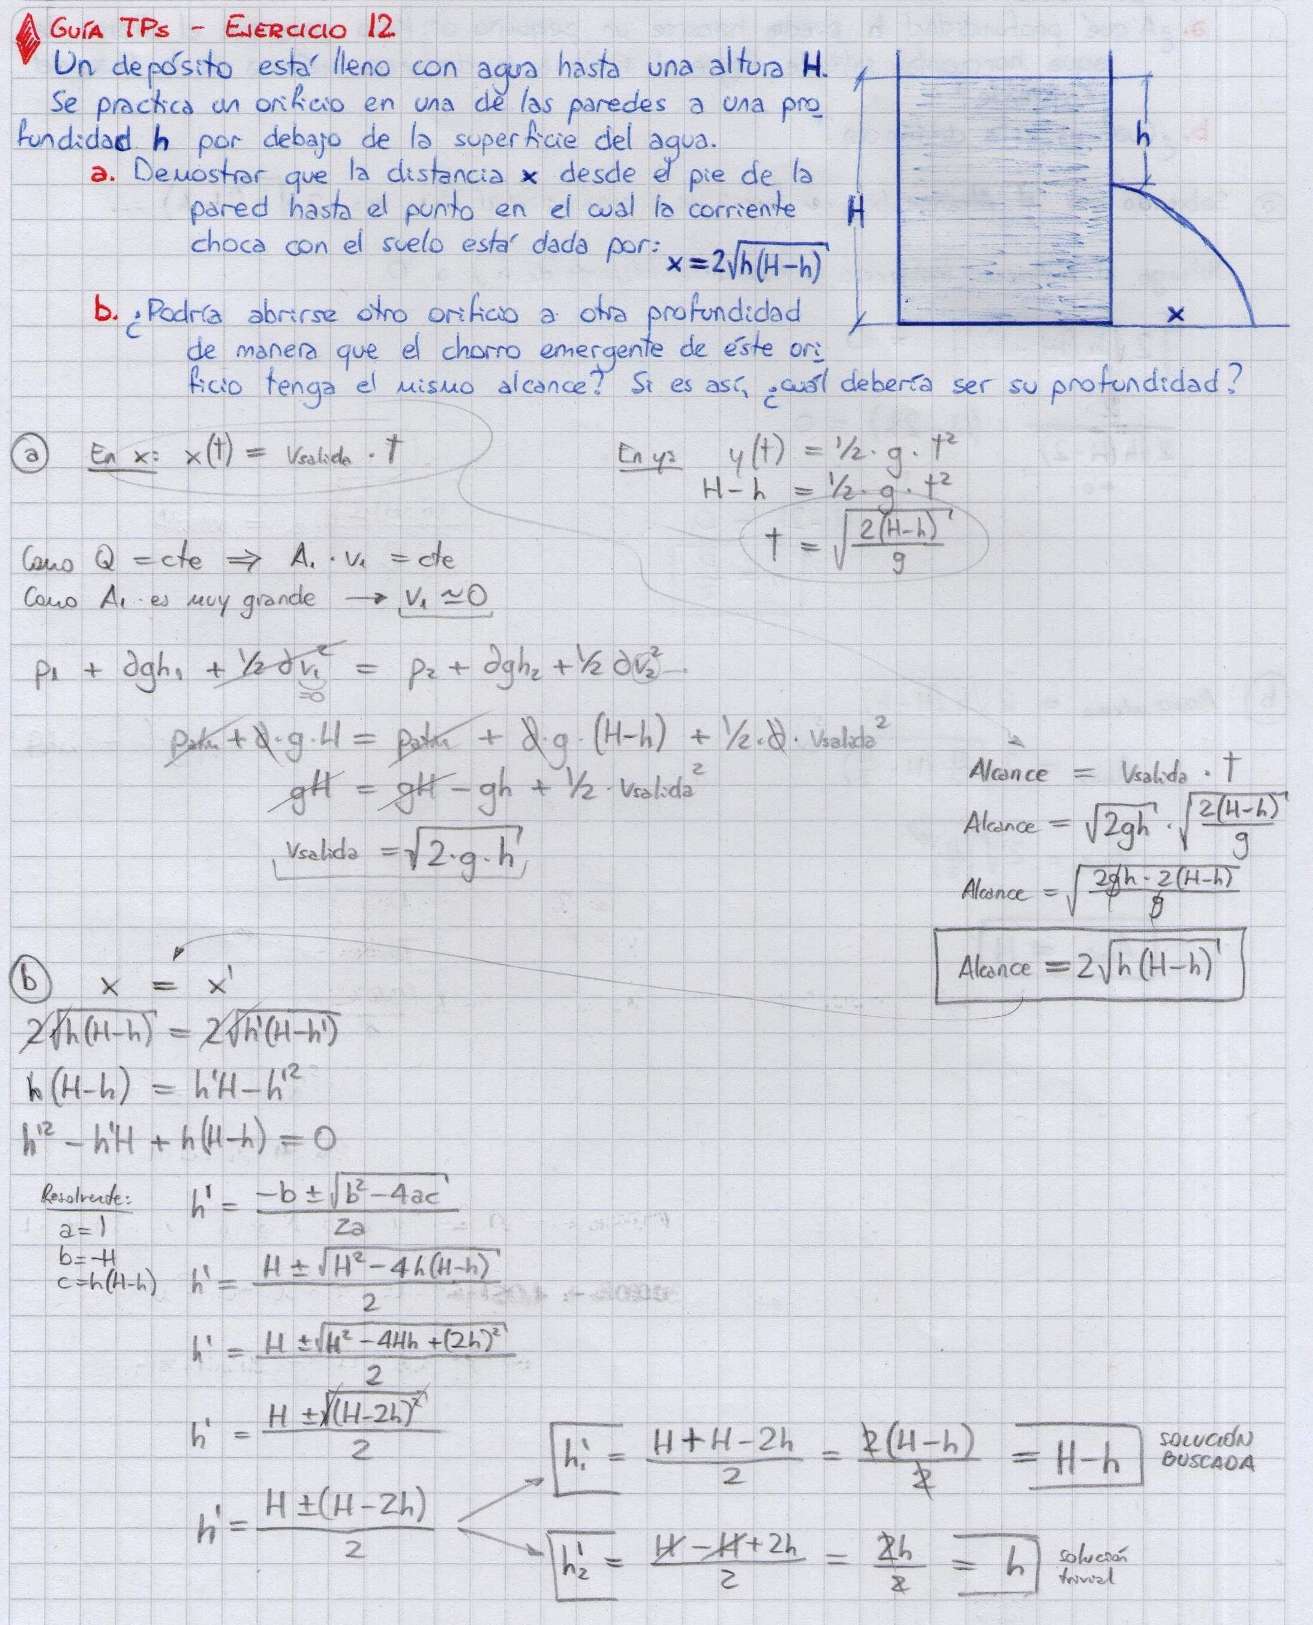 GUÍA TPs - EJERCICIO 12
Un depósito está lleno con agua hasta una altura H.
Se practica un orificio en una de las paredes a una pro
fundidad h por debajo de la superficie del agua.
a. Demostrar que la distancia x desde el pie de la
pared hasta el punto en el cual la corriente
choca con el suelo está dada por: x = 2√(h(H-h))
b. ¿Podría abrirse otro orificio a otra profundidad
de manera que el chorro emergente de éste ori
ficio tenga el mismo alcance? Si es así, ¿cuál debería ser su profundidad?
H
h
x
a En x: x(t) = Vsalida · t
En y: y(t) = 1/2 · g · t²
H-h = 1/2 · g · t²
t = √(2(H-h)/g)
Como Q = cte ⇒ A₁ · v₁ = cte
Como A₁ es muy grande → v₁ ≃ 0
p₁ + ∂gh₁ + 1/2 ∂v₁² = p₂ + ∂gh₂ + 1/2 ∂v₂²
=0
patm + ∂·g·H = patm + ∂·g·(H-h) + 1/2·∂·Vsalida²
gH = gH - gh + 1/2 · Vsalida²
Vsalida = √(2·g·h)
Alcance = Vsalida · t
Alcance = √(2gh) · √(2(H-h)/g)
Alcance = √(2gh · 2(H-h)/g)
Alcance = 2√(h(H-h))
b x = x'
2√(h(H-h)) = 2√(h'(H-h'))
h(H-h) = h'H - h'²
h'² - h'H + h(H-h) = 0
Resolvente:
a=1
b=-H
c=h(H-h)
h' = (-b ± √(b²-4ac))/2a
h' = (H ± √(H²-4h(H-h)))/2
h' = (H ± √(H²-4Hh+(2h)²))/2
h' = (H ± √((H-2h)²))/2
h' = (H ± (H-2h))/2
h₁' = (H+H-2h)/2 = 2(H-h)/2 = H-h SOLUCIÓN
BUSCADA
h₂' = (H-H+2h)/2 = 2h/2 = h solución
trivial